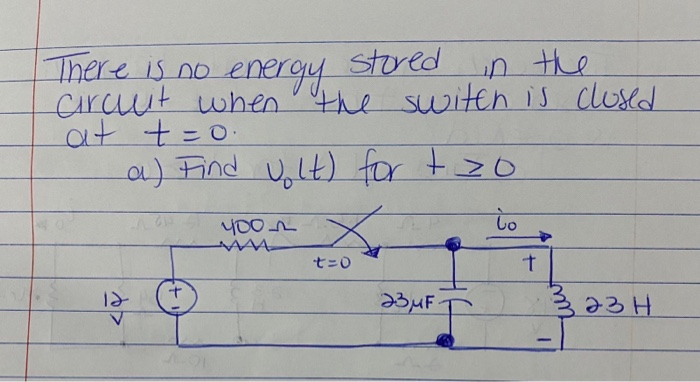 There is no energy stored in the
circuit when the switch is closed
at t = 0.
a) Find v₀(t) for t ≥ 0
400 Ω
i₀
t=0
+
12
V
+
-
23μF
23 H
-